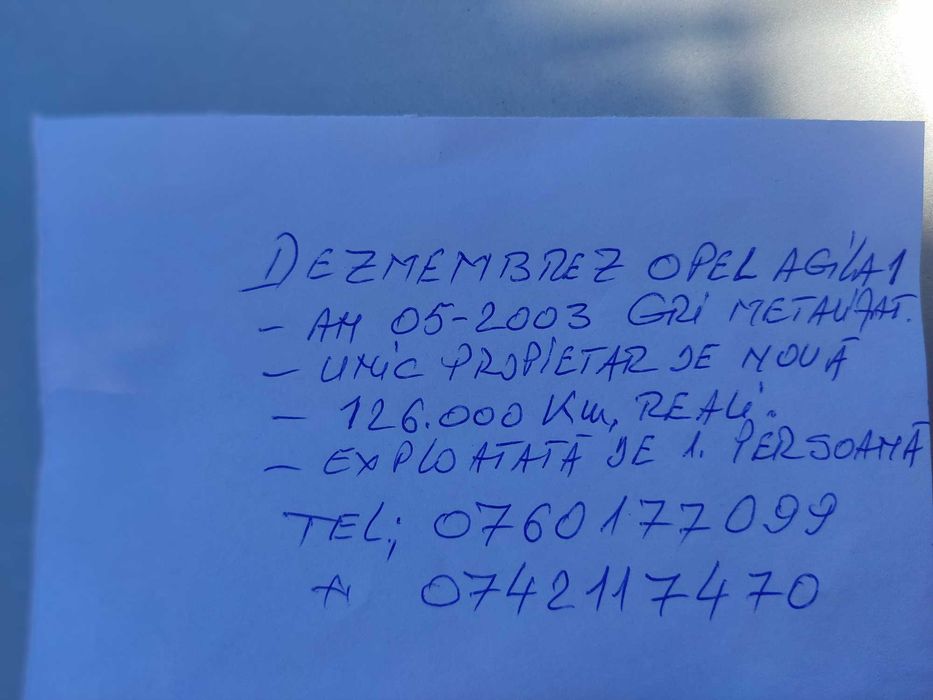 DEZMEMBREZ OPEL AGILA 1
- AN 05-2003 GRI METALIZAT.
- UNIC PROPIETAR DE NOUĂ
- 126.000 Km, REALi.
- EXPLOATATĂ DE 1. PERSOANĂ
TEL; 0760177099
0742117470